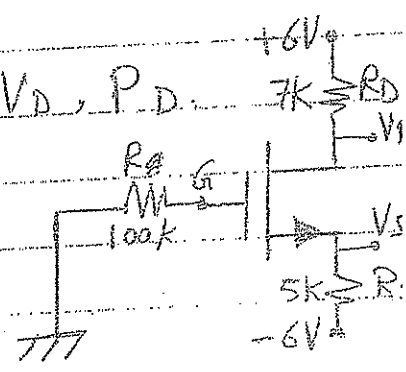 +6V
VD, PD.
7K RD
RG G
100K
VS
5K
-6V